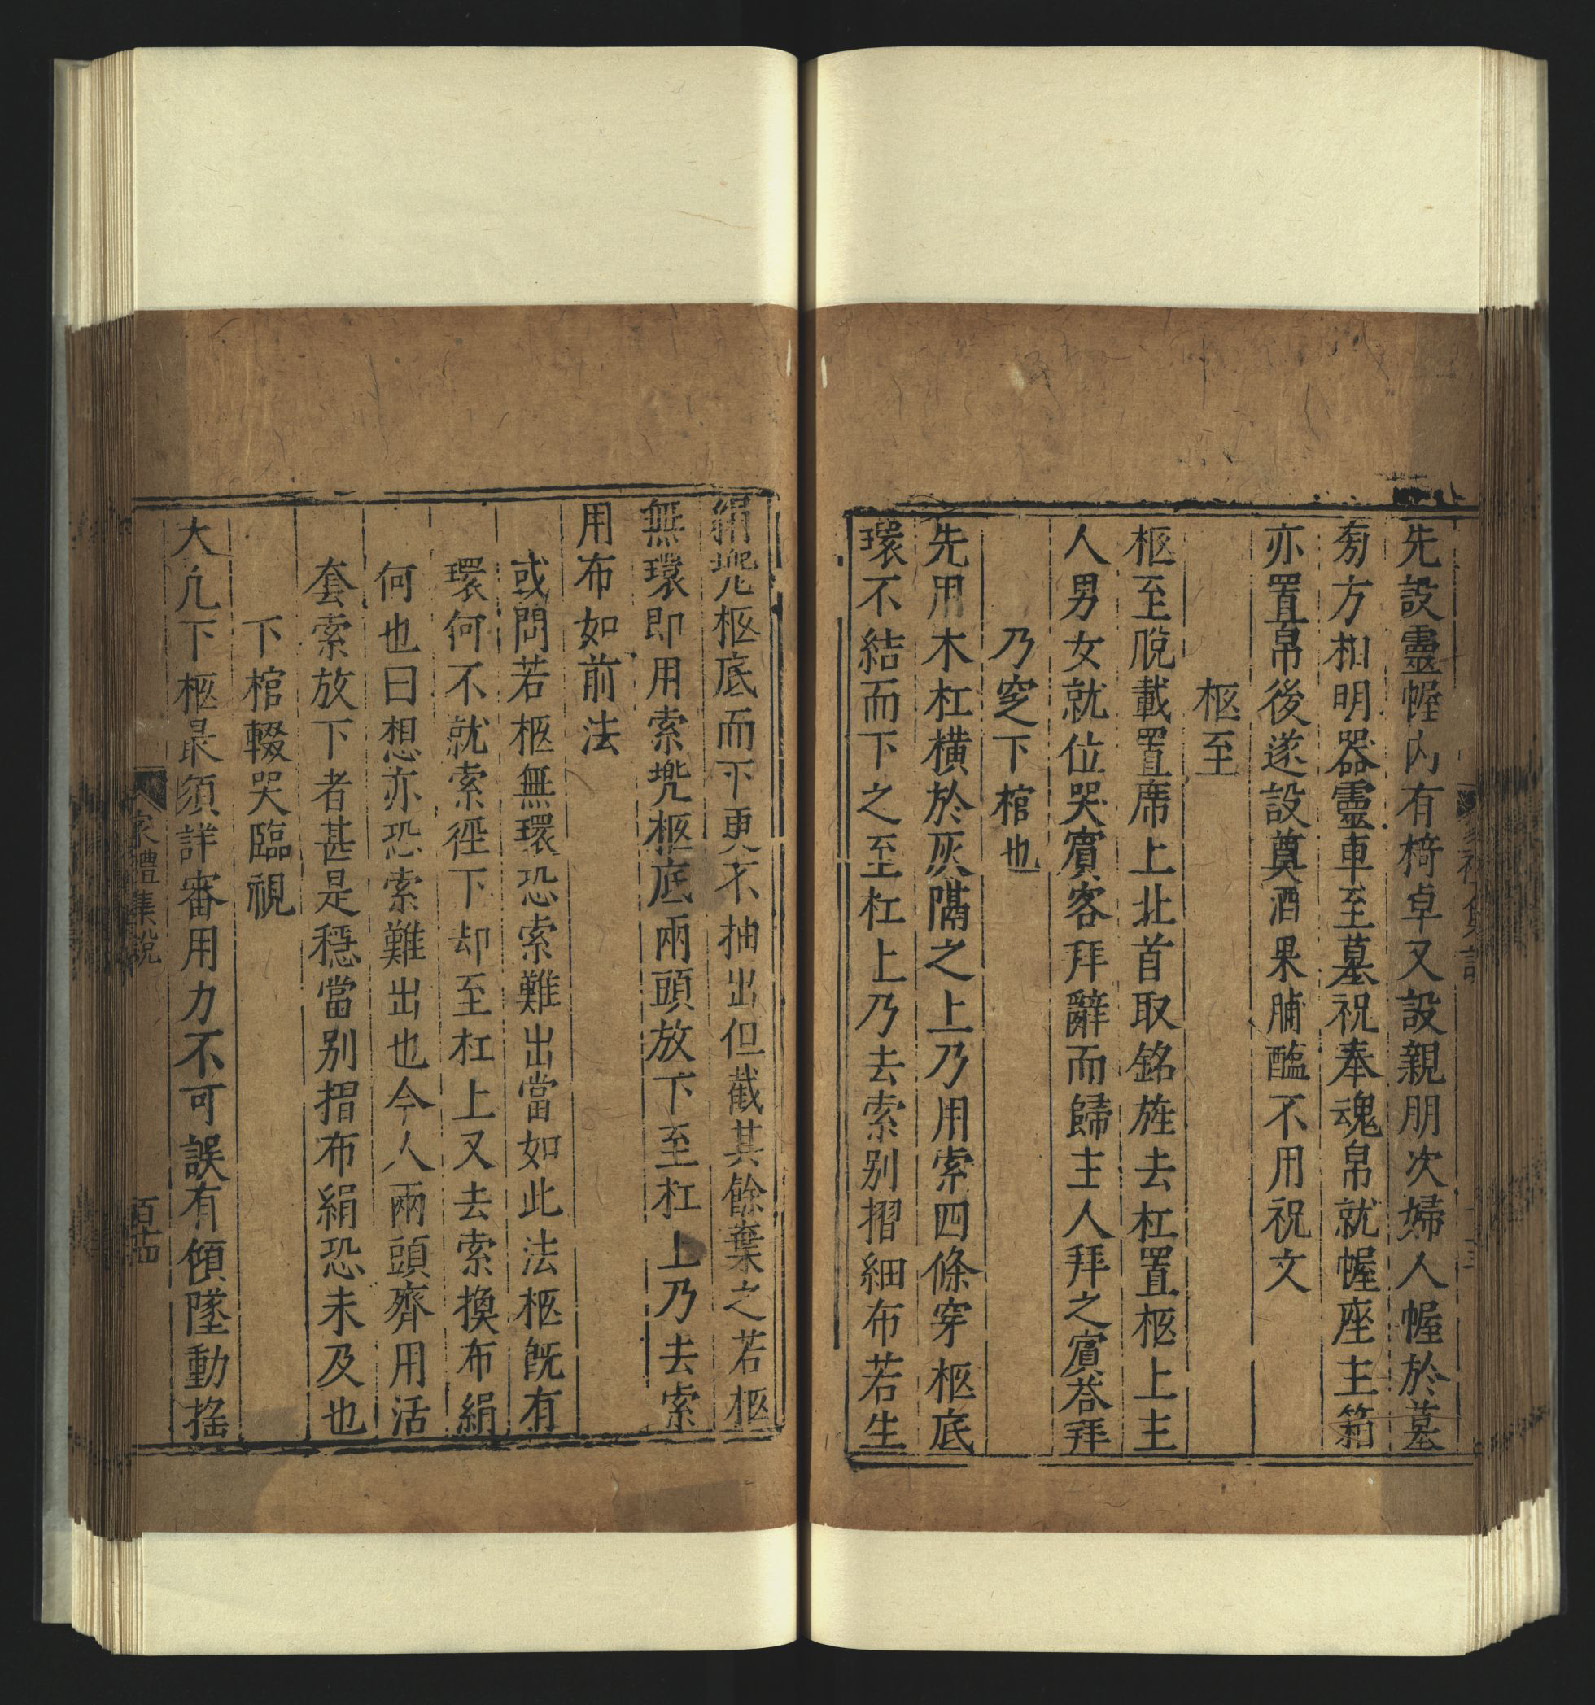 先設靈幄内有椅卓又設親朋次婦人幄於墓
㫄方相明器靈車至墓祝奉魂帛就幄座主箱
亦置帛後遂設奠酒果脯醢不用祝文
柩至
柩至脫載置席上北首取銘旌去杠置柩上主
人男女就位哭賔客拜辭而歸主人拜之賔荅拜
乃窆下棺也
先用木杠橫於灰隔之上乃用索四條穿柩底
環不結而下之至杠上乃去索别摺細布若生
絹兠柩底而下更不抽出但截其餘棄之若柩
無環即用索兠柩底兩頭放下至杠上乃去索
用布如前法
或問若柩無環恐索難出當如此法柩旣有
環何不就索徑下却至杠上又去索換布絹
何也曰想亦恐索難出也今人兩頭齊用活
套索放下者甚是穩當别摺布絹恐未及也
下棺輟哭臨視
大凢下柩最須詳審用力不可誤有傾墜動搖
家禮集說
百十四